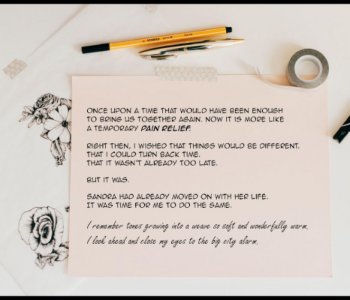 ONCE UPON A TIME THAT WOULD HAVE BEEN ENOUGH
TO BRING US TOGETHER AGAIN. NOW IT IS MORE LIKE
A TEMPORARY PAIN RELIEF.
RIGHT THEN, I WISHED THAT THINGS WOULD BE DIFFERENT.
THAT I COULD TURN BACK TIME.
THAT IT WASN'T ALREADY TOO LATE.
BUT IT WAS.
SANDRA HAD ALREADY MOVED ON WITH HER LIFE.
IT WAS TIME FOR ME TO DO THE SAME.
I remember tones growing into a weave so soft and wonderfully warm.
I look ahead and close my eyes to the big city alarm.